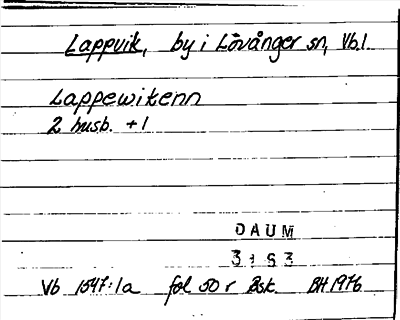 Lappvik, by i Lövånger sn, Vb.
Lappewikenn
2 husb. +1
DAUM
3193
Vb 1547:1a fol 50 r Bsk BH 1976